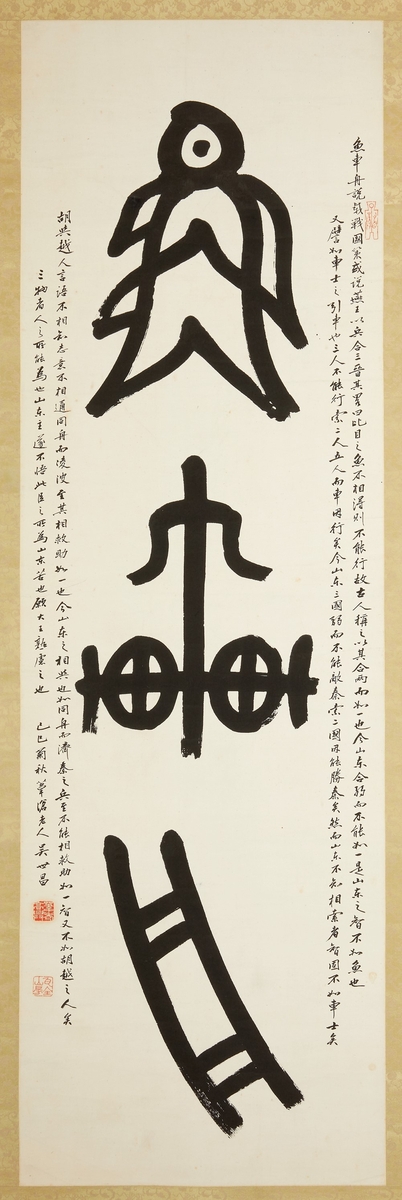 魚車舟說 戰國策或說燕王以兵合三晉其畧曰比目之魚不相得則不能行故古人稱之以其合兩而如一也今山東合弱而不能如一是山東之智不如魚也
又譬如車士之引車也三人不能行索二人五人而車因行矣今山東三國弱而不能敵秦索二國因能勝秦矣然而山東不知相索者智固不如車士矣
魚車舟
胡與越人言語不相知志意不相通同舟而淩波至其相救助如一也今山東之相與也如同舟而濟秦之兵至不能相救助如一智又不如胡越之人矣
三物者人之所能為也山東主遂不悟此臣之所為山東苦也願大王熟慮之也 己巳秋 葦滄老人 吳世昌